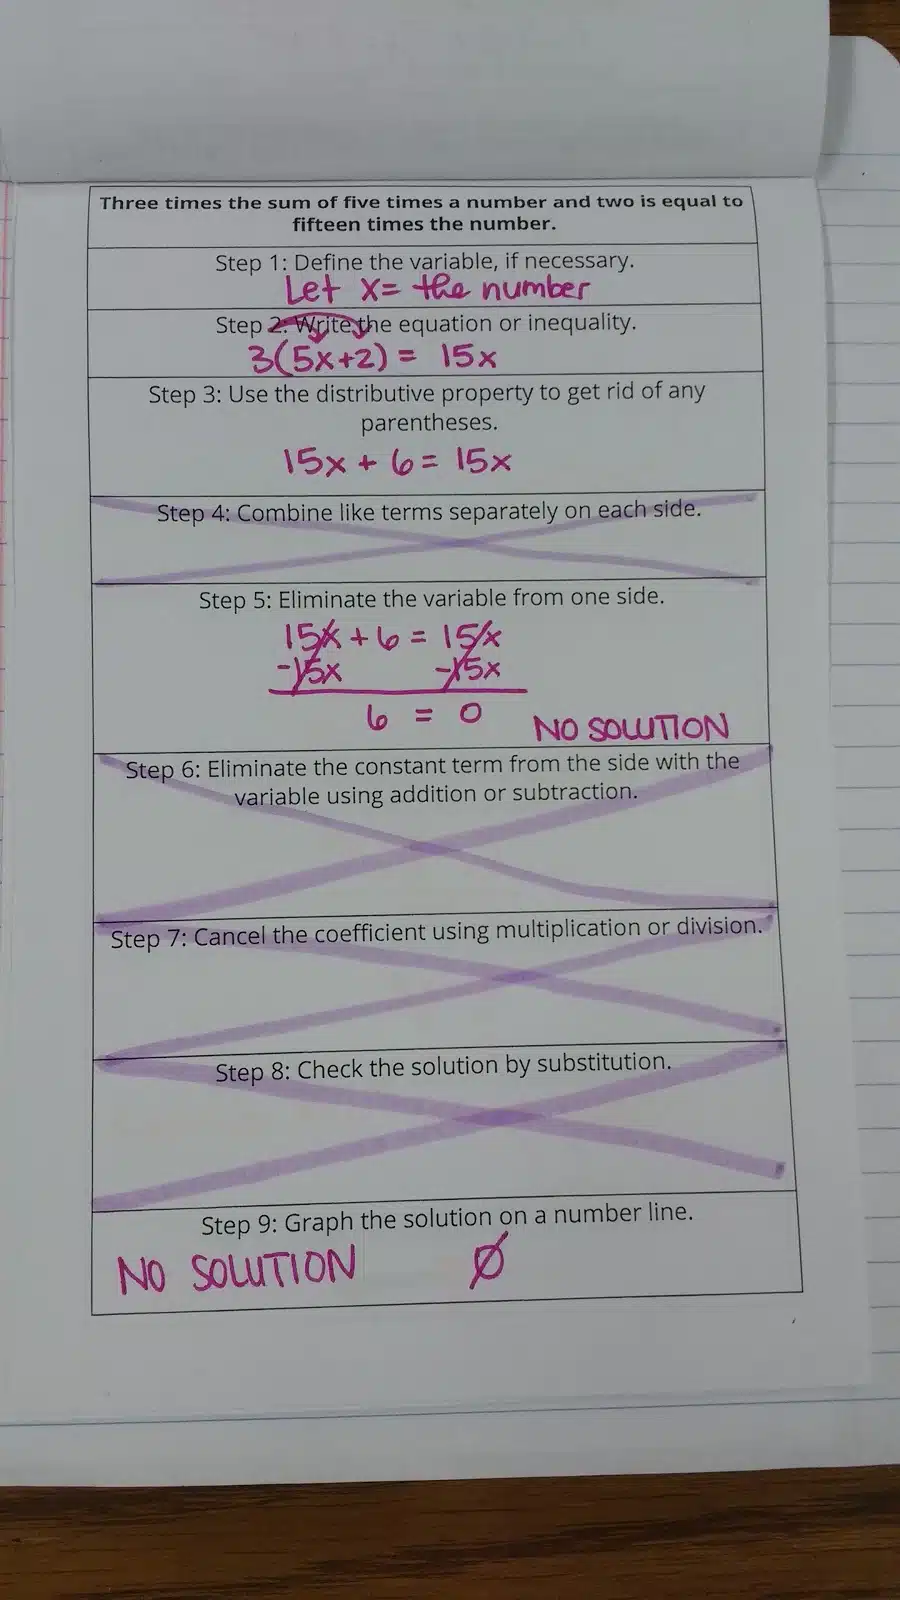 Three times the sum of five times a number and two is equal to
fifteen times the number.
Step 1: Define the variable, if necessary.
Let x= the number
Step 2: Write the equation or inequality.
3(5x+2) = 15x
Step 3: Use the distributive property to get rid of any
parentheses.
15x + 6 = 15x
Step 4: Combine like terms separately on each side.
Step 5: Eliminate the variable from one side.
15x + 6 = 15x
-15x -15x
6 = 0 NO SOLUTION
Step 6: Eliminate the constant term from the side with the
variable using addition or subtraction.
Step 7: Cancel the coefficient using multiplication or division.
Step 8: Check the solution by substitution.
Step 9: Graph the solution on a number line.
NO SOLUTION Ø